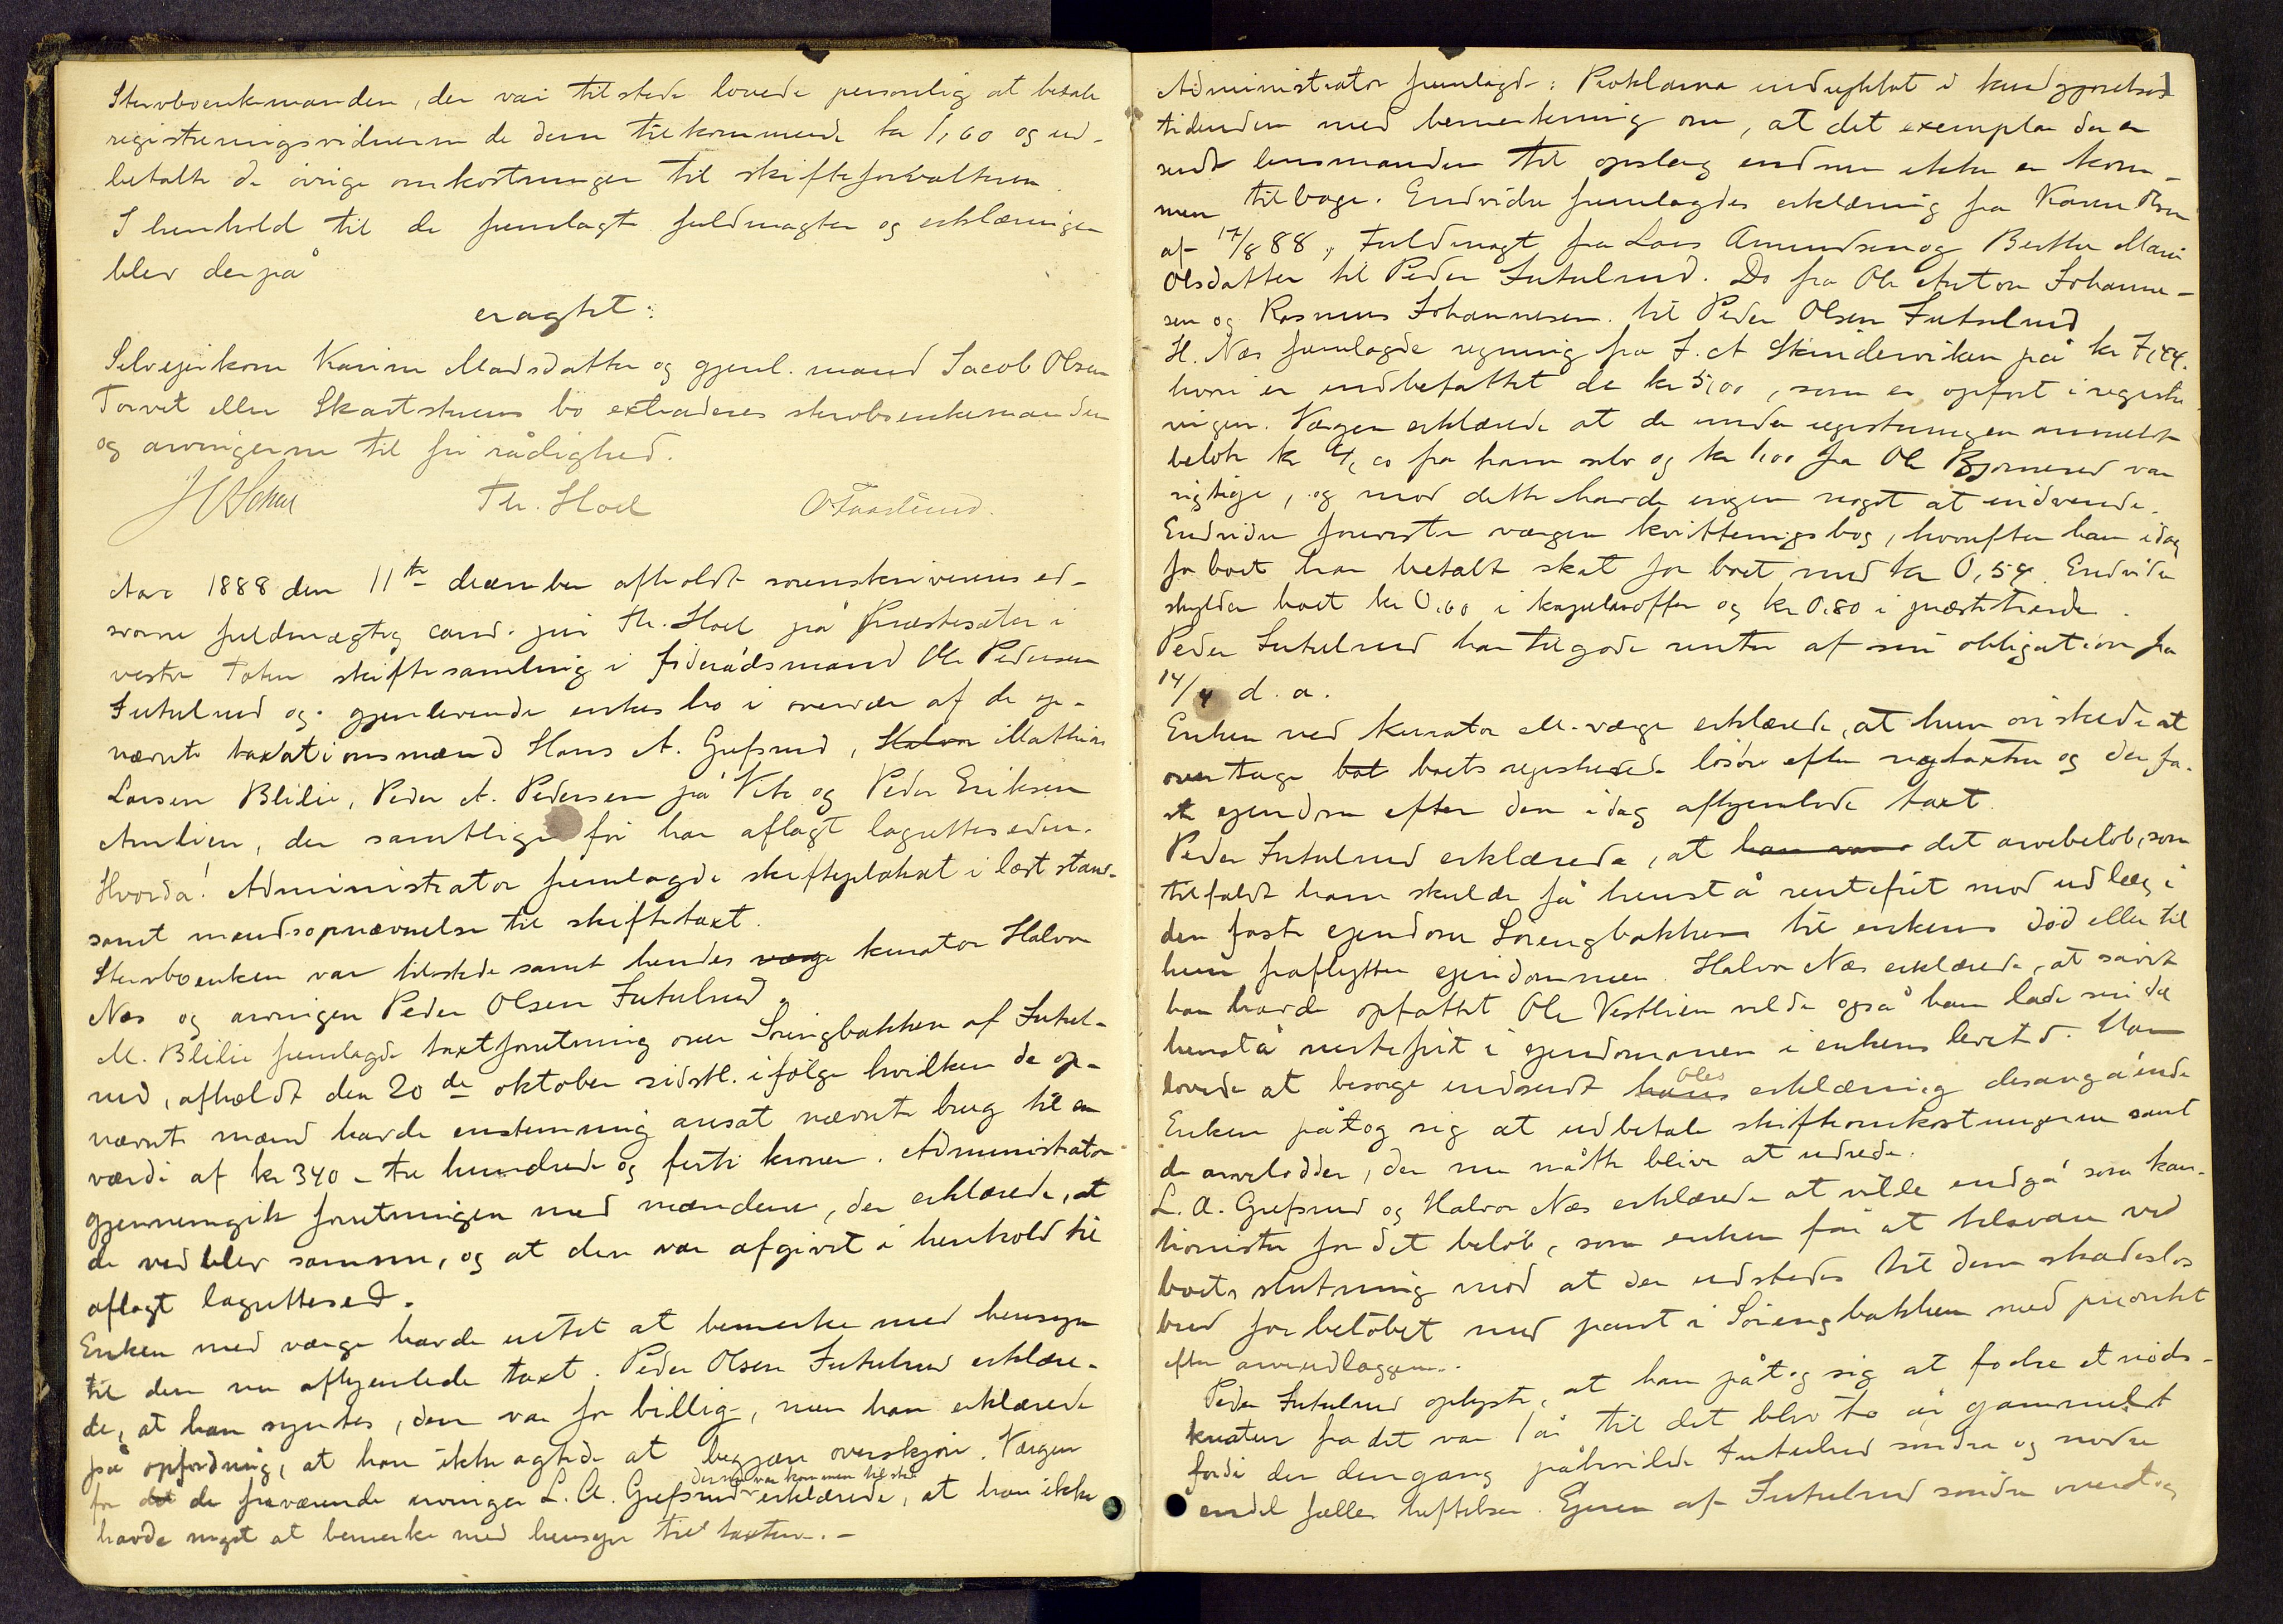 Stervboenkemanden, der var tilstede lovede personlig at betale
registreringsvidnerne de dem tilkommende kr 1,60 og ud-
betalte de øvrige omkostninger til skifteforvalteren.
I henhold til de fremlagte fuldmagter og erklæringer
blev derpå
eragtet:
Selveierkone Karine Madsdatter og gjenl. mand Jacob Olsen
Torvet eller Skartstuens bo extraderes stervboenkemanden
og arvingerne til fri rådighed.
Th. Hoel O. Faarlund.
Aar 1888 den 11te december afholdt sorenskriverens ed-
svorne fuldmægtig cand. jur Th. Hoel på Præstesæter i
vestre Toten skiftesamling i føderådsmand Ole Pedersen
Jutulrud og gjenlevende enkes bo i overvær af de op-
nævnte taxationsmænd Hans A. Gufsrud, Halvor Mathias
Larsen Blilie, Peder A. Pedersen på Vete og Peder Eriksen
Amlien, der samtlige før har aflagt lagrettes eden.
Hvorda! Administrator fremlagde skifteplakat i læst stand
samt mændsopnævnelse til skiftetaxt.
Stervboenken var tilstede samt hendes værge kurator Halvor
Næs og arvingen Peder Olsen Jutulrud.
M. Blilie fremlagde taxtforretning over Sörengbakken af Jutul-
rud, afholdt den 20de oktober sidstl. ifølge hvilken de op-
nævnte mænd havde enstemmig ansat nævnte brug til en
værdi af kr 340 - tre hundrede og firti kroner. Administrator
gjennemgik forretningen med mændene, der erklærede, at
de vedblev samme, og at den var afgivet i henhold til
aflagt lagrettesed.
Enken med værge havde intet at bemerke med hensyn
til den nu afhjemlede taxt. Peder Olsen Jutulrud erklære-
de, at han syntes, den var for billig, men han erklærede
på opfordring, at han ikke agtede at begjære overskjøn. Værgen
der nu var kommen tilstede
for det de fraværende arvinger L. A. Gufsrud erklærede, at han ikke
havde noget at bemerke med hensyn til taxten.-
Administrator fremlagde: Proklama indrykket i kundgjørelses
tidenden med bemerkning om, at det exemplar der er
sendt lensmanden til opslag endnu ikke er kom-
men tilbage. Endvidere fremlagdes erklæring fra Karen Olsen
af 17/8 88, Fuldmagt fra Lars Amundsen og Berthe Marie
Olsdatter til Peder Jutulrud. Do fra Ole Anton Johanne-
sen og Rasmus Johannesen til Peder Olsen Jutulrud
H. Næs fremlagde regning fra J. A Skinderviken på kr 7,44.
hvori er indbefattet de kr 5,00, som er opført i registre
ringen. Værgen erklærede at de under registreringen anmeldte
beløb kr 4,00 fra ham selv og kr 1,00 fra Ole Bjørnerud var
rigtige, og mod dette havde ingen noget at indvende.
Endvidere foreviste værgen kvitteringsbog, hvorefter han idag
for boet har betalt skat for boet med kr 0,54. Endvidere
skylder boet kr 0,60 i kapelanoffer og kr 0,80 i præstetiende.
Peder Jutulrud har tilgode renter af sin obligation fra
14/4 d. a.
Enken ved kurator M. værge erklærede, at hun ønskede at
overtage bot boets registrerede løsøre efter regtaxten og den fa-
ste ejendom efter den idag afhjemlede taxt.
Peder Jutulrud erklærede, at han det arvebeløb, som
tilfaldt ham skulde få henstå rentefrit mod udlæg i
den faste ejendom Sörengbakken til enkens død eller til
hun fraflytter ejendommen. Halvor Næs erklærede, at såvidt
han havde opfattet Ole Vestlien vilde også han lade sin del
henstå rentefrit i ejendommen i enkens levetid. Man
Oles
lovede at besørge indsendt hans erklæring desangående
Enken påtog sig at udbetale skifteomkostningerne samt
de arvelodder, der nu måtte blive at udrede.
L. A. Gufsrud og Halvor Næs erklærede at ville indgå som kau-
tionister for det beløb, som enken får at tilsvare ved
boets slutning mod at der udstedes til dem skadesløs
brev for beløbet med pant i Sörengbakken med prioritet
efter arveudlæggene.
Peder Jutulrud oplyste, at han påtog sig at fodre et nöds-
kreatur fra det var 1 år til det blev to år gammelt
fordi der dengang påhvilede Jutulrud söndre og nordre
endel fælles heftelser. Ejeren af Jutulrud söndre overtog